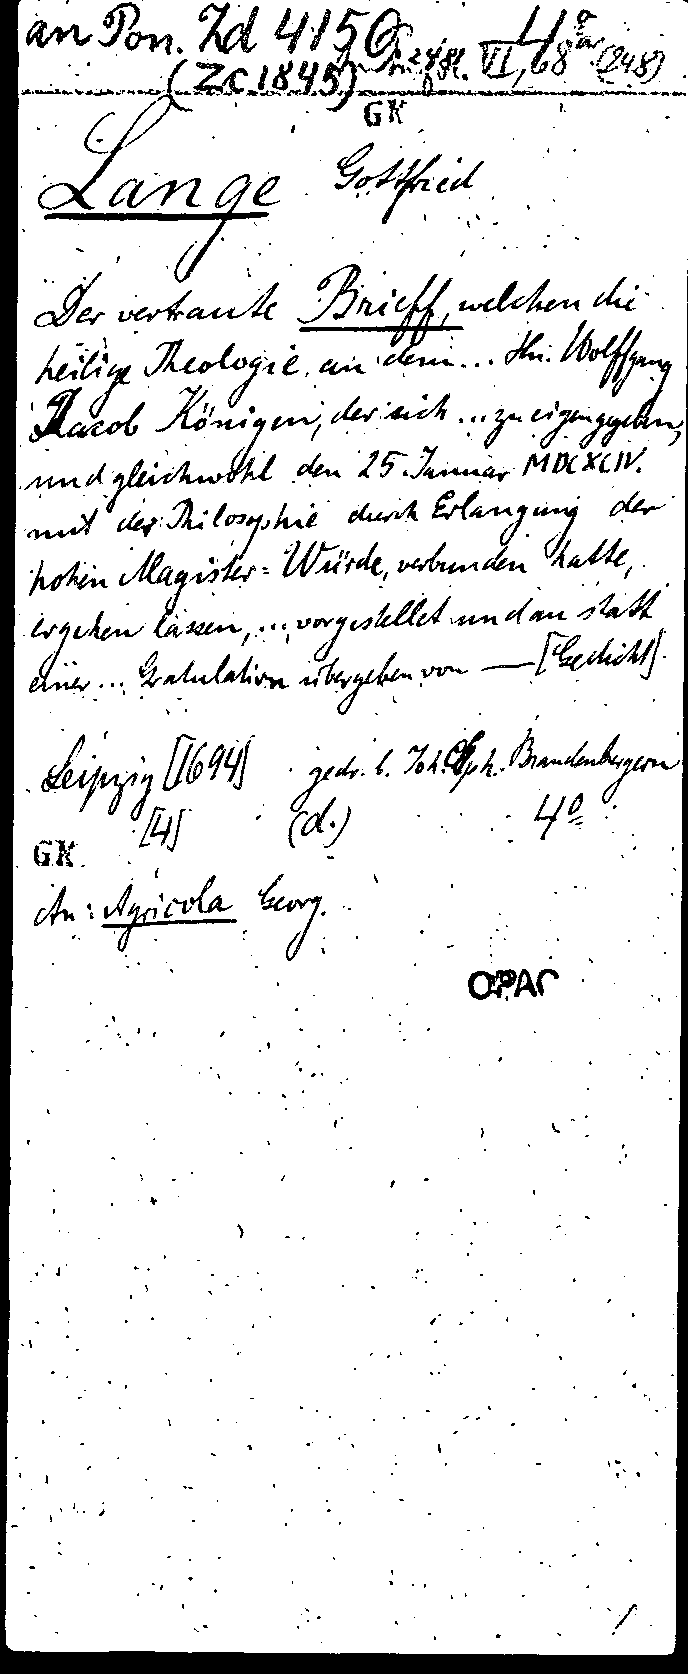 an Pon. Zd 4150 4°
(ZC 1845) VI, 68 (248)
GK
Lange Gottfried
Der vertraute Brieff, welchen die
heilige Theologie an dem... Hn. Wolffgang
Jacob Königen, der sich ... zu eigen gegeben,
und gleichwohl den 25 Januar MDCXCIV.
mit der Philosophie durch Erlangung der
hohen Magister-Würde, verbunden hatte,
ergehen lassen, ... vorgestellet und an statt
einer ... Gratulation übergeben von — [Gedicht].
Leipzig [1694] gedr. b. Joh. Brandenbergern
[4] (d.) 4°
GK
An: Agricola Georg.
OPAC